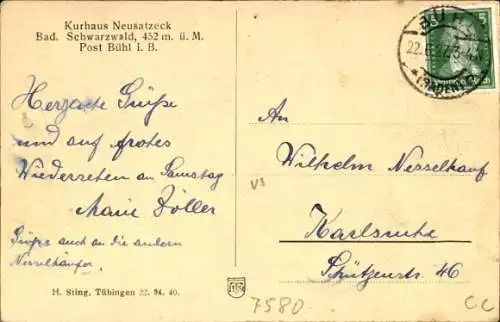 Kurhaus Neusatzeck
Bad. Schwarzwald, 452 m. ü. M.
Post Bühl i. B.
Herzache Grüße
und auf frohes
Wiedersehen am Samstag
Marie Zöller
Grüße auch an die andern
Nesselhäufer.
H. Sting, Tübingen 22. 94. 40.
BÜHL
(BADEN)
5
An
Wilhelm Nesselhauf
Karlsruhe
Schützenstr. 46
vs
7580
CC